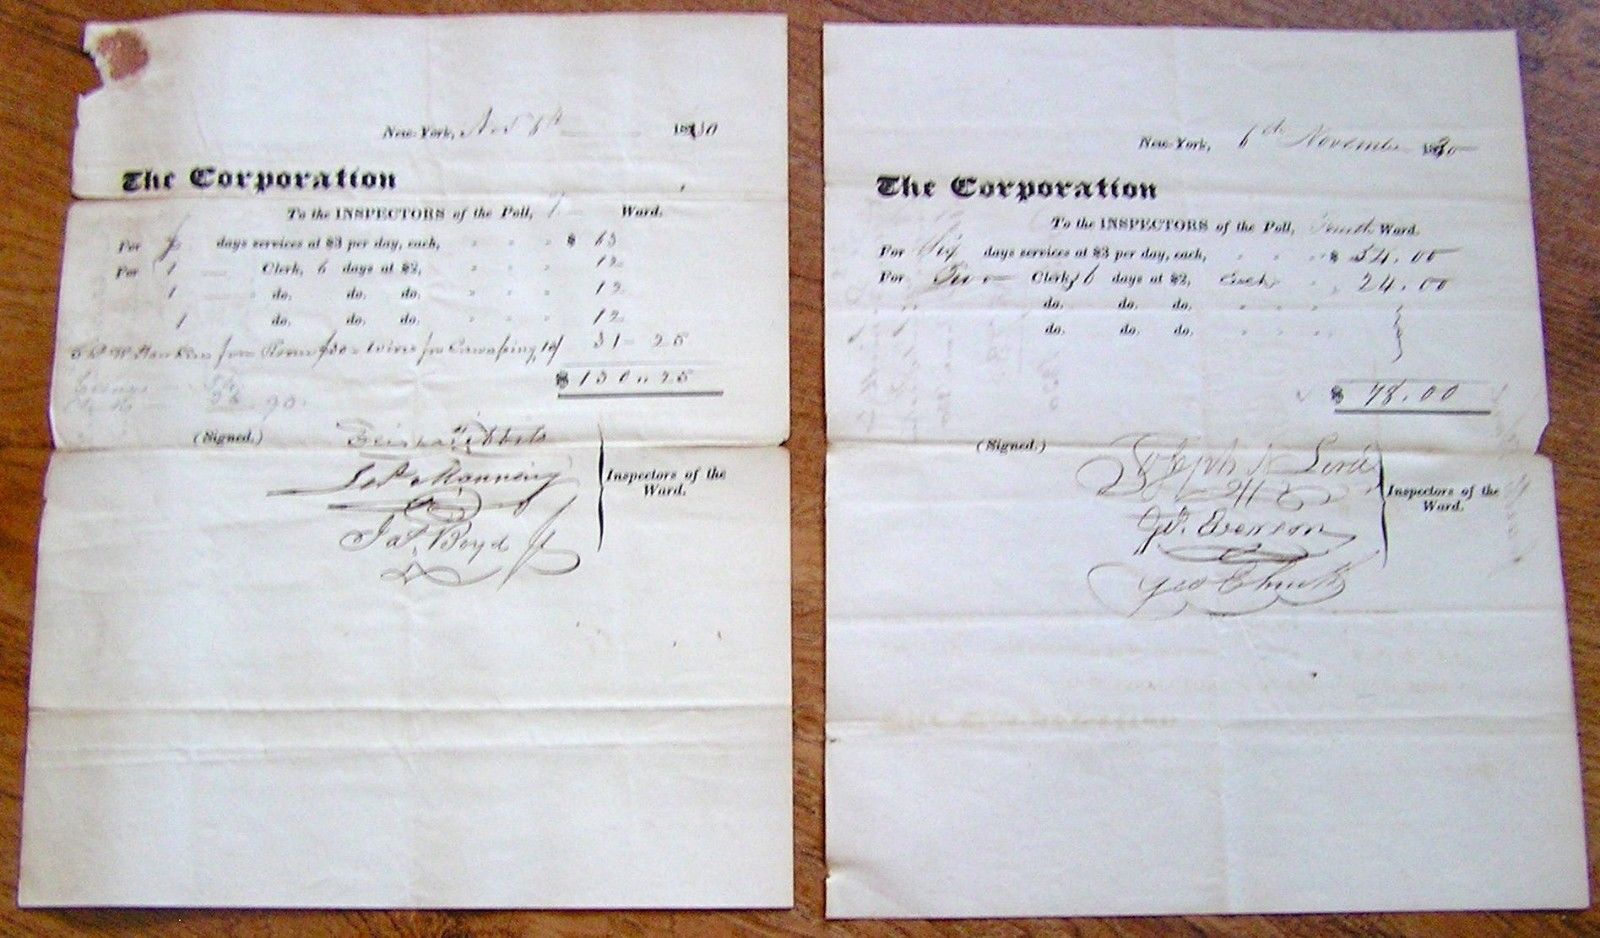 New-York, Nov 6th 1830
The Corporation
To the INSPECTORS of the Poll, Ward.
For 7 days services at $3 per day, each, " " " $ 63
For 1 Clerk, 6 days at $2, " " " 12
1 " do. do. do. " " " 12
1 do. do. do. " " 12
for Room $30 for Canvassing 10/ 31 - 25
$ 130 " 25
90.
(Signed.)
Manning
Inspectors of the
Ward.
Jas. Boyd Jr
New-York, 6th November 1830
The Corporation
To the INSPECTORS of the Poll, Ward.
For Six days services at $3 per day, each, " " " $ 54.00
For Two Clerks 6 days at $2, each " " 24.00
" do. do. do. " " "
1 do. do. do. " " "
$ 78.00
(Signed.)
Joseph N Lord
Inspectors of the
Ward.
Evenson
Geo